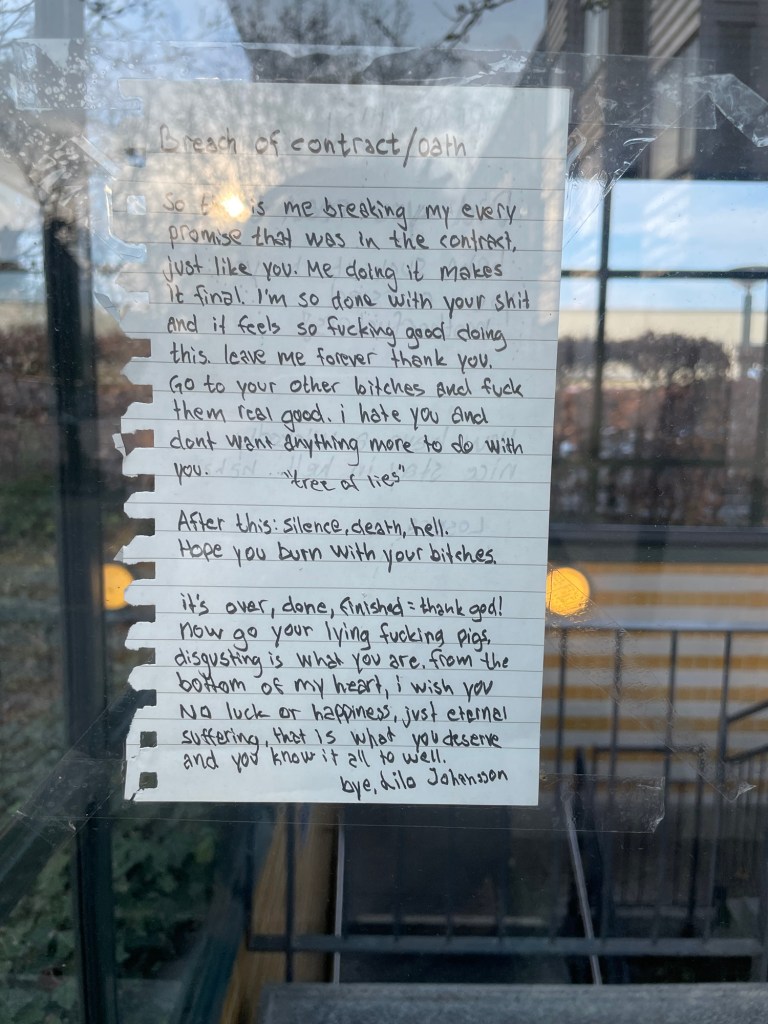 Breach of contract/oath
So is me breaking my every
promise that was in the contract,
just like you. Me doing it makes
it final. I'm so done with your shit
and it feels so fucking good doing
this. leave me forever thank you.
Go to your other bitches and fuck
them real good. i hate you and
dont want anything more to do with
you. "tree of lies"
After this: silence, death, hell.
Hope you burn with your bitches.
it's over, done, finished = thank god!
now go your lying fucking pigs,
disgusting is what you are. from the
bottom of my heart, i wish you
No luck or happiness, just eternal
suffering, that is what you deserve
and you know it all to well.
bye, Lilo Johansson